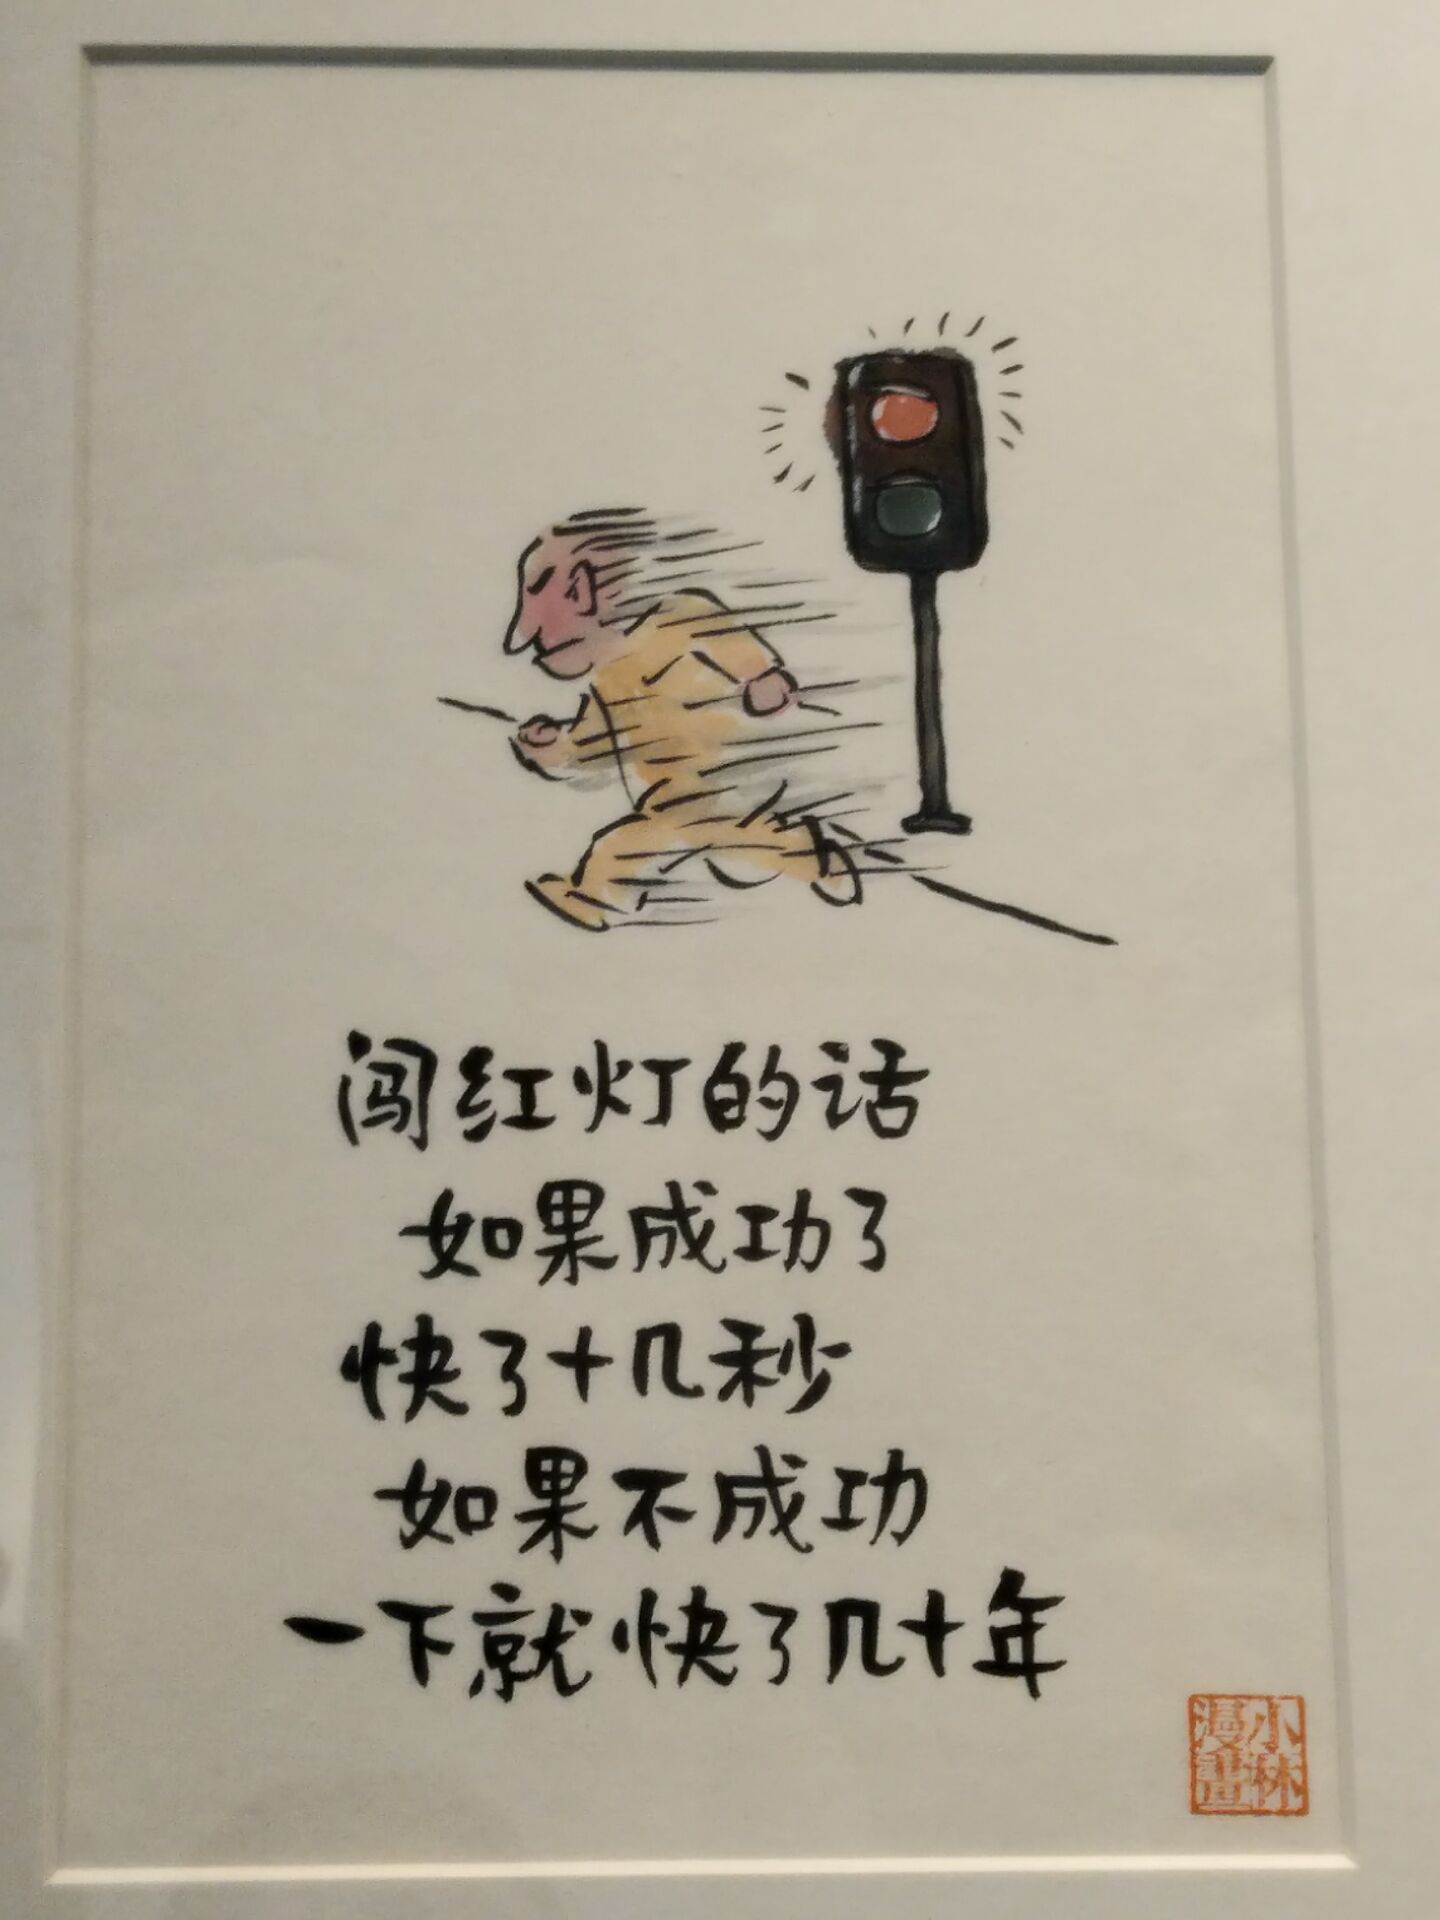 闯红灯的话
如果成功了
快了十几秒
如果不成功
一下就快了几十年
小林
漫畫